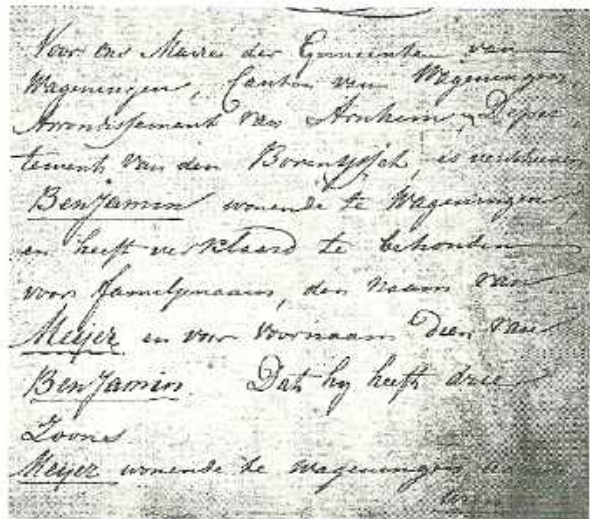 Voor ons Maire der Gemeenten van
Wageningen, Canton van Wageningen,
Arrondissement van Arnhem, Depar
tement van den Bovenyssel, is verscheenen
Benjamin wonende te Wageningen,
en heeft verklaard te behouden
voor familynaam, den naam van
Meijer en voor voornaam dien van
Benjamin. Dat hy heeft drie
Zoons
Meyer wonende te Wageningen